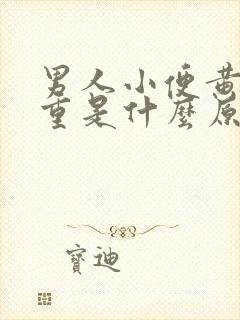 男人小便黄
重是什麼原
寶迪